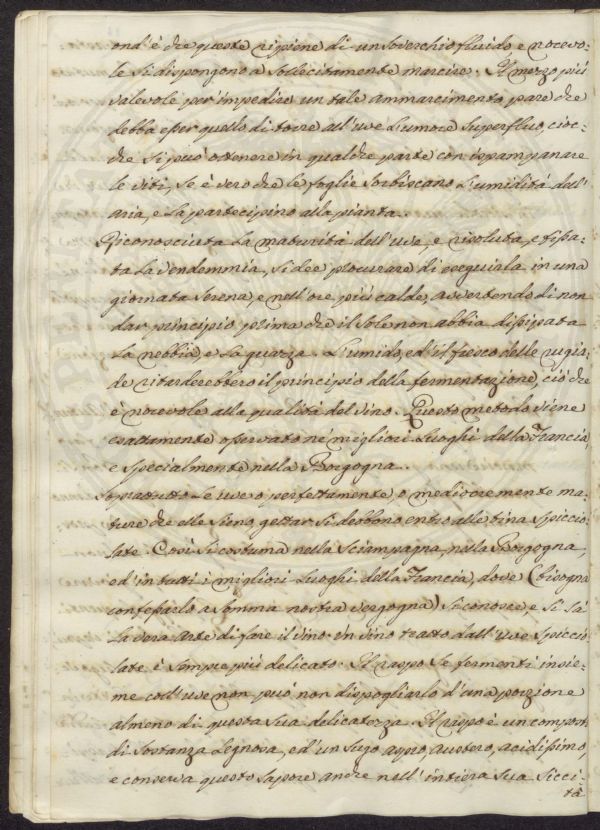 ond'è che queste ripiene di un soverchio fluido, e nocevo-
le si dispongono a sollecitamente marcire. Il mezzo più
valevole per impedire un tale ammarcimento, pare che
debba esser quello di torre all'uve l'umore superfluo, cioc-
che si può ottenere in qualche parte con ispampanare
le viti, se è vero che le foglie sorbiscano l'umidità dall'
aria, e la partecipino alla pianta.
Riconosciuta la maturità dell'uve, e risoluta, e fissa-
ta la vendemmia, si dee procurare di eseguirla in una
giornata serena, e nell'ore più calde, avvertendo di non
dar principio prima che il sole non abbia dissipata
la nebbia, e la guazza. L'umido, ed il fresco delle rugia-
de ritarderebbero il principio della fermentazione, ciò che
è nocevole alla qualità del vino. Questo metodo viene
esattamente osservato ne' migliori luoghi della Francia,
e specialmente nella Borgogna.
Sopratutto le uve o perfettamente, o mediocremente ma-
ture che elle sieno gettar si debbono entro alle tina spiccio-
late. Così si costuma nella Sciampagna, nella Borgogna,
ed in tutti i migliori luoghi della Francia, dove (bisogna
confessarlo a somma nostra vergogna) si conosce, e si sà
la vera arte di fare il vino. Un vino tratto dall'uve spiccio
late è sempre più delicato. Il raspo se fermenti insie-
me coll'uve non può non dispogliarlo d'una porzione
almeno di questa sua delicatezza. Il raspo è un compost
di sostanza legnosa, ed'un sugo aspro, austero, acidissimo,
e conserva questo sapore anche nell'intiera sua sicci-
tà